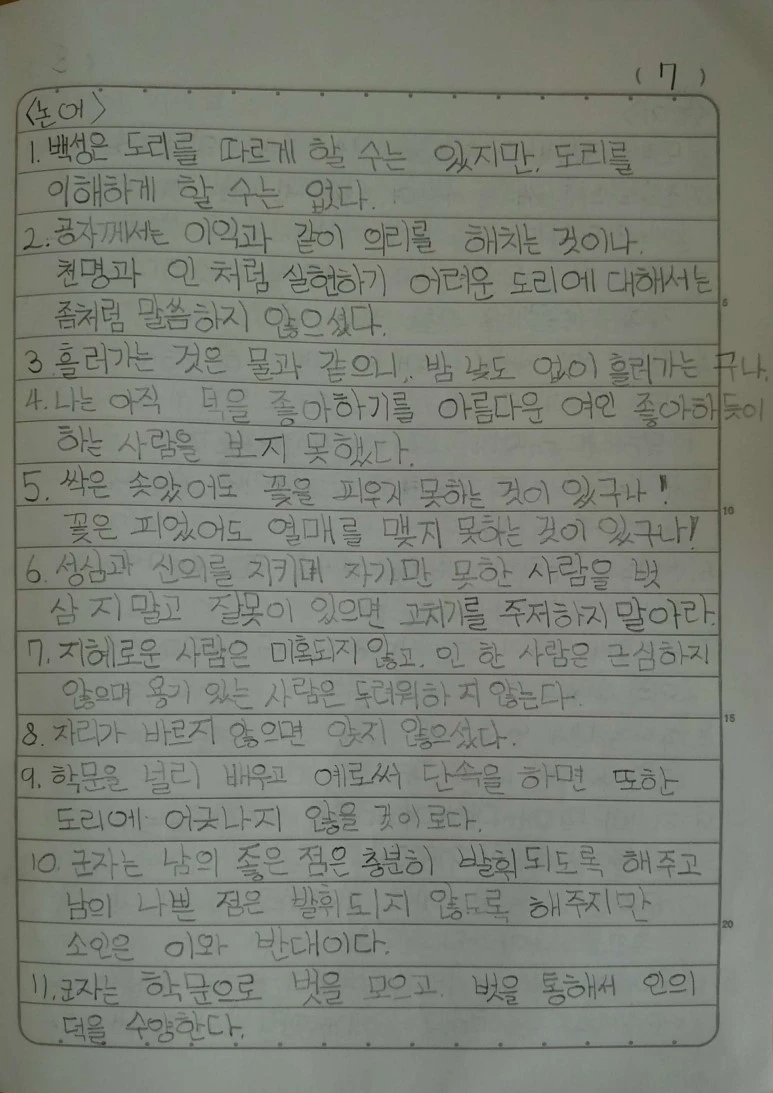 ( 7 )
<논어>
1. 백성은 도리를 따르게 할 수는 있지만, 도리를
이해하게 할 수는 없다.
2. 공자께서는 이익과 같이 의리를 해치는 것이나.
천명과 인 처럼 실현하기 어려운 도리에 대해서는
5
좀처럼 말씀하지 않으셨다.
3. 흘러가는 것은 물과 같으니, 밤 낮도 없이 흘러가는 구나.
4. 나는 아직 덕을 좋아하기를 아름다운 여인 좋아하듯이
하는 사람을 보지 못했다.
5. 싹은 솟았어도 꽃을 피우지 못하는 것이 있구나!
10
꽃은 피었어도 열매를 맺지 못하는 것이 있구나!
6. 성심과 신의를 지키며 자기만 못한 사람을 벗
삼 지 말고 잘못이 있으면 고치기를 주저하지 말아라.
7. 지혜로운 사람은 미혹되지 않고, 인 한 사람은 근심하지
않으며 용기 있는 사람은 두려워하 지 않는다.
15
8. 자리가 바르지 않으면 앉지 않으셨다.
9. 학문을 널리 배우고 예로써 단속을 하면 또한
도리에 어긋나지 않을 것이로다.
10. 군자는 남의 좋은 점은 충분히 발휘되도록 해주고
남의 나쁜 점은 발휘되지 않도록 해주지만
20
소인은 이와 반대이다.
11. 군자는 학문으로 벗을 모으고. 벗을 통해서 인의
덕을 수양한다.